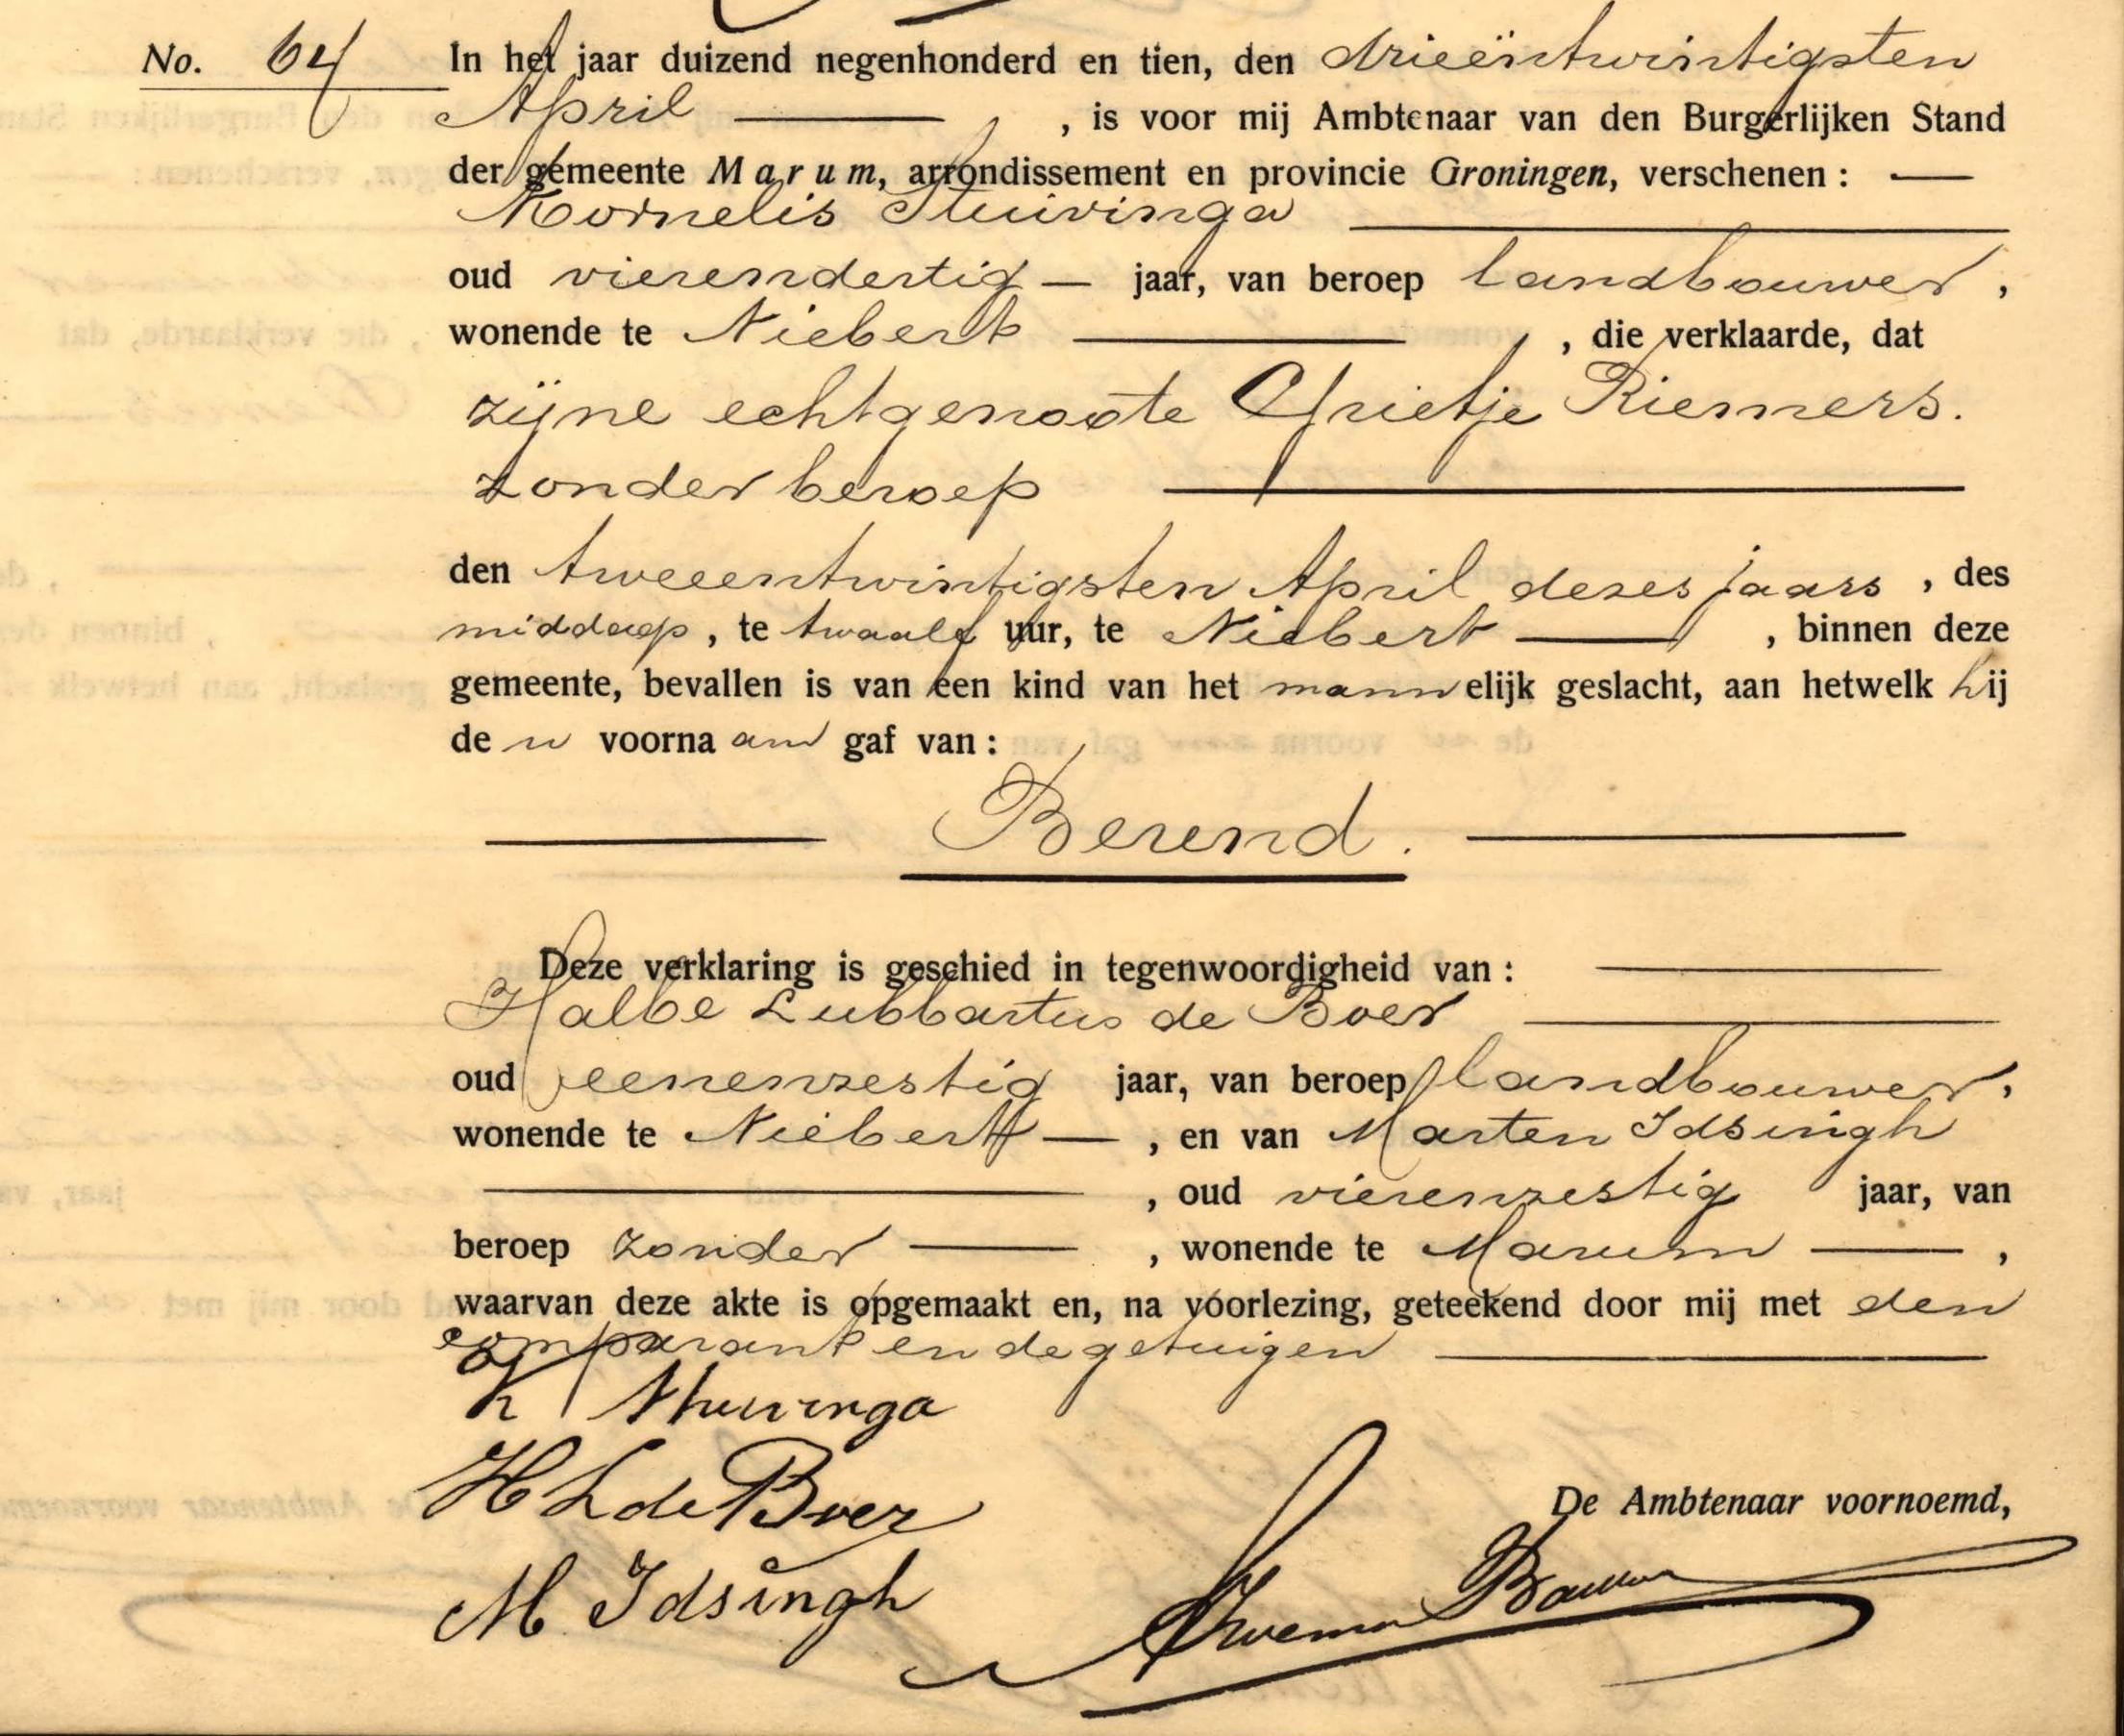 No. 64 In het jaar duizend negenhonderd en tien, den drieëntwintigsten
April , is voor mij Ambtenaar van den Burgerlijken Stand
der gemeente Marum, arrondissement en provincie Groningen, verschenen :
Kornelis Stuivinga
oud vierendertig jaar, van beroep landbouwer,
wonende te Niebert , die verklaarde, dat
zijne echtgenoote Grietje Riemers.
zonder beroep
den tweeentwintigsten April dezes jaars , des
middags , te twaalf uur, te Niebert , binnen deze
gemeente, bevallen is van een kind van het mannelijk geslacht, aan hetwelk hij
den voornaam gaf van :
Berend.
Deze verklaring is geschied in tegenwoordigheid van :
Halbe Lubbartus de Boer
oud eenenzestig jaar, van beroep landbouwer,
wonende te Niebert , en van Marten Idsingh
, oud vierenzestig jaar, van
beroep zonder , wonende te Marum ,
waarvan deze akte is opgemaakt en, na voorlezing, geteekend door mij met den
comparant en de getuigen
K Stuivinga
H L de Boer
De Ambtenaar voornoemd,
M Idsingh